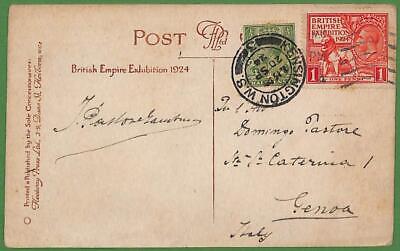 POST
British Empire Exhibition 1924
Printed & Published by the Sole Concessionaires:
Fleetway Press Ltd., 3-9, Dane St. Holborn, WC1
KENSINGTON W.8.
BRITISH
EMPIRE
EXHIBITION
1924
1 ONE PENNY 1
Domingo Pastore
Sta Caterina 1
Genoa
Italy